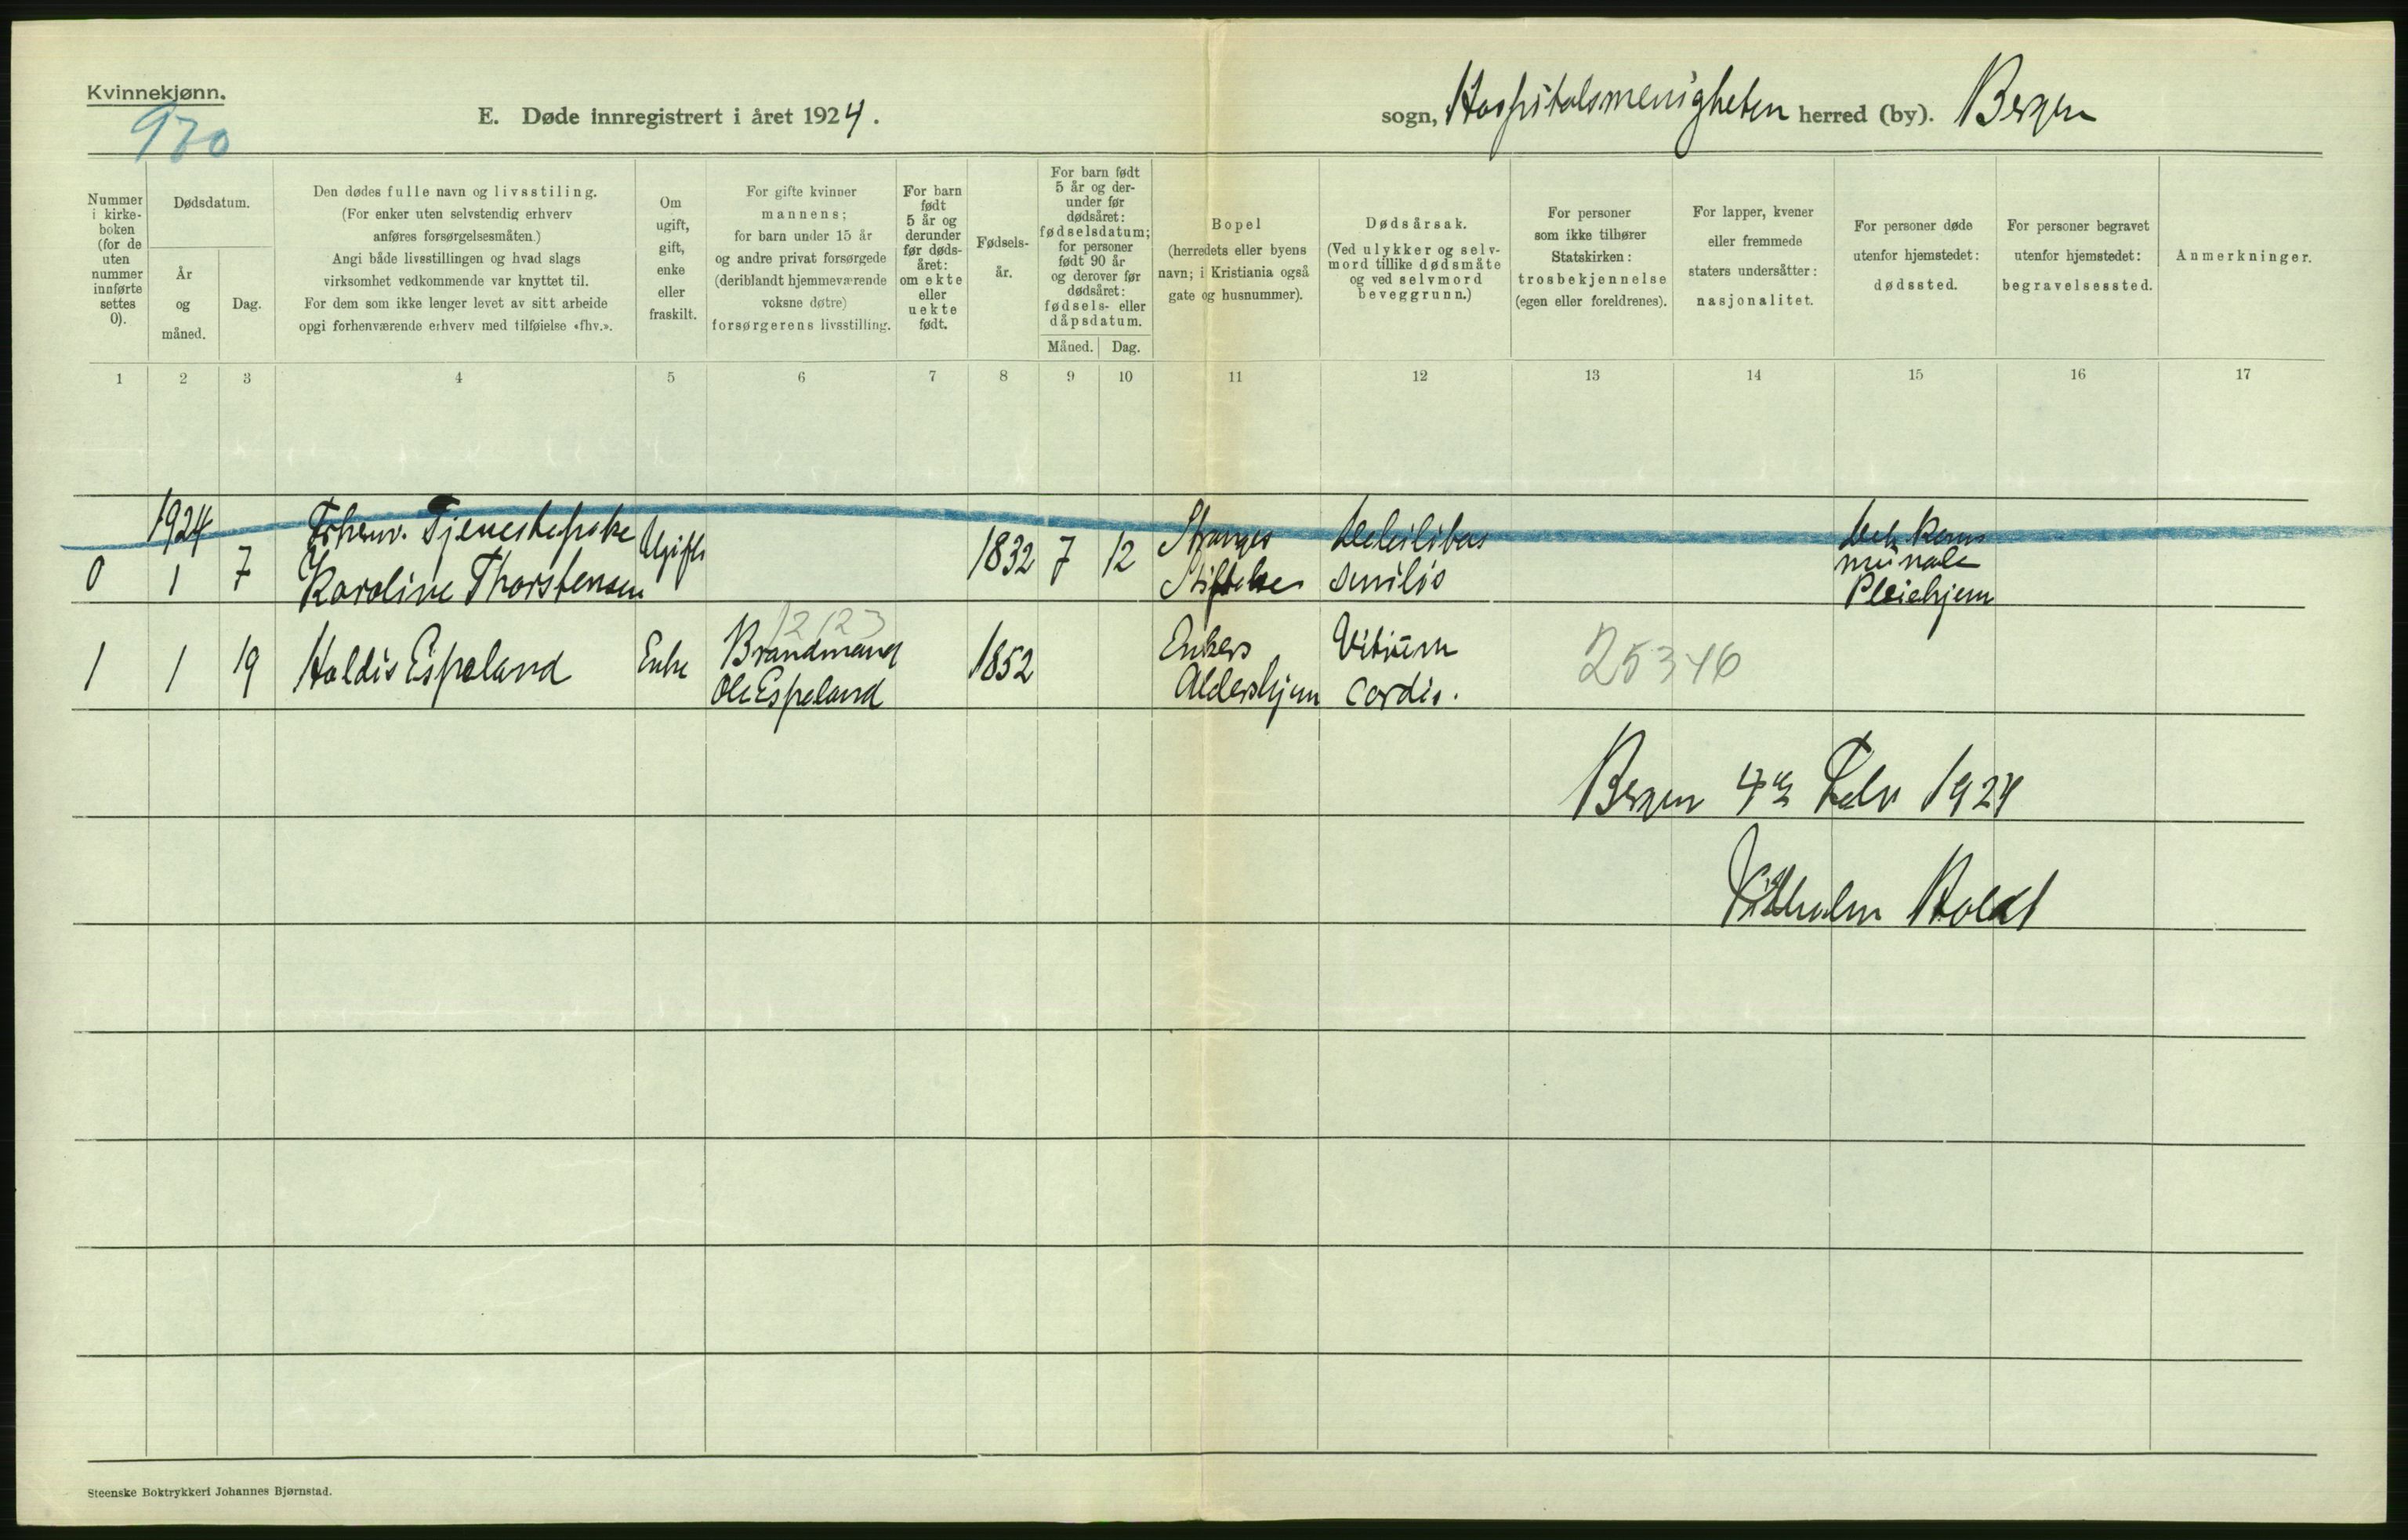 Kvinnekjønn.
970
E. Døde innregistrert i året 1924.
sogn, Hospitalsmenigheten herred (by). Bergen
Nummer
i kirke-
boken
(for de
uten
nummer
innførte
settes
0).
Dødsdatum.
År
og
måned.
Dag.
Den dødes fulle navn og livsstiling.
(For enker uten selvstendig erhverv
anføres forsørgelsesmåten.)
Angi både livsstillingen og hvad slags
virksomhet vedkommende var knyttet til.
For dem som ikke lenger levet av sitt arbeide
opgi forhenværende erhverv med tilføielse «fhv.».
Om
ugift,
gift,
enke
eller
fraskilt.
For gifte kvinner
mannens;
for barn under 15 år
og andre privat forsørgede
(deriblandt hjemmeværende
voksne døtre)
forsørgerens livsstilling.
For barn
født
5 år og
derunder
før døds-
året:
om ekte
eller
uekte
født.
Fødsels-
år.
For barn født
5 år og der-
under før
dødsåret:
fødselsdatum;
for personer
født 90 år
og derover før
dødsåret:
fødsels- eller
dåpsdatum.
Måned. Dag.
Bopel
(herredets eller byens
navn; i Kristiania også
gate og husnummer).
Dødsårsak.
(Ved ulykker og selv-
mord tillike dødsmåte
og ved selvmord
beveggrunn.)
For personer
som ikke tilhører
Statskirken:
trosbekjennelse
(egen eller foreldrenes).
For lapper, kvener
eller fremmede
staters undersåtter:
nasjonalitet.
For personer døde
utenfor hjemstedet:
dødssted.
For personer begravet
utenfor hjemstedet:
begravelsessted.
Anmerkninger.
1 2 3 4 5 6 7 8 9 10 11 12 13 14 15 16 17
1924
0 1 7
Forhenv. Tjenestepike
Karoline Thorstensen
Ugift
1832 7 12
Stranges
Stiftelse
Debilitas
senilis
Det kom
munale
Pleiehjem
1 1 19 Haldis Espeland Enke
12123
Brandmand
Ole Espeland
1852
Enkers
Aldershjem
Vitium
cordis.
25346
Bergen 4de Febr 1924
Vilhelm Boldt
Steenske Boktrykkeri Johannes Bjørnstad.